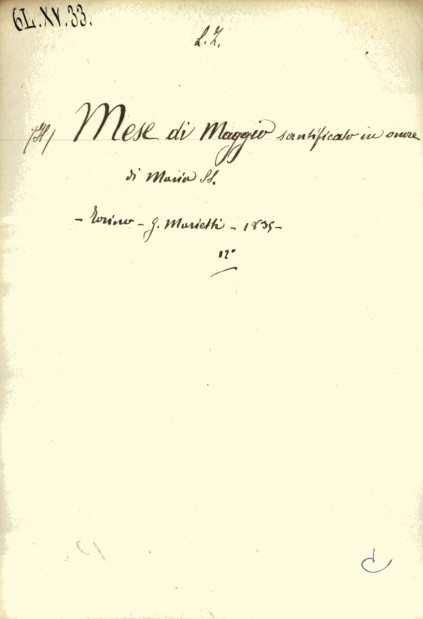 6L.XV.33.
L. Z.
Mese di Maggio santificato in onore
di Maria SS.
- Torino - G. Marietti - 1835 -
12°